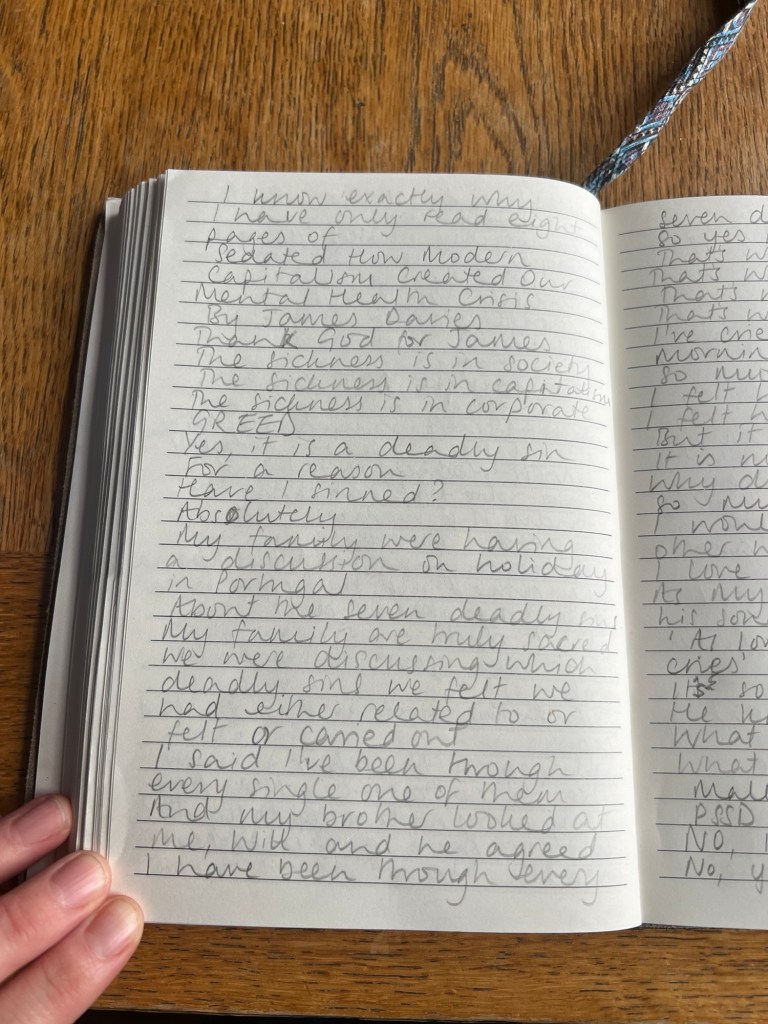 I know exactly why
I have only read eight
pages of
Sedated How Modern
Capitalism Created Our
Mental Health Crisis
By James Davies
Thank God for James
The sickness is in society
The sickness is in capitalism
The sickness is in corporate
GREED
Yes, it is a deadly sin
For a reason
Have I sinned?
Absolutely
My family were having
a discussion on holiday
in Portugal
About the seven deadly sins
My family are truly sacred
we were discussing which
deadly sins we felt we
had either related to or
felt or carried out
I said I've been through
every single one of them
And my brother looked at
me, Will and he agreed
I have been through every
seven d
So yes
That's w
That's w
That's w
That's w
I've crie
Mornin
So mu
I felt h
I felt h
But it
It is n
Why d
So mu
I woul
other w
I love
As My
his son
'At lo
cries'
It's so
He k
What
What
Mal
PSSD
NO, I
No, y